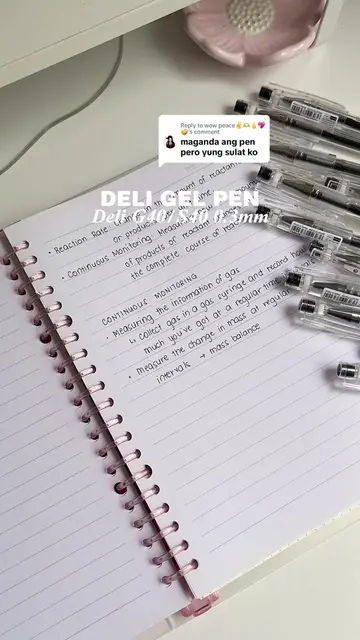 Reply to wow peace✌️🫶🫰💖😜's comment
maganda ang pen
pero yung sulat ko
DELI GEL PEN
Deli G40/ S40 0.3mm
• Reaction Rate: Change in the amount of reactants
or product
• Continuous Monitoring: Measuring
of products or reactants
the complete course of
CONTINUOUS MONITORING
• Measuring the information of gas
↳ Collect gas in a gas syringe and record how
much you've got at a regular time
• Measure the change in mass at regular
intervals → mass balance